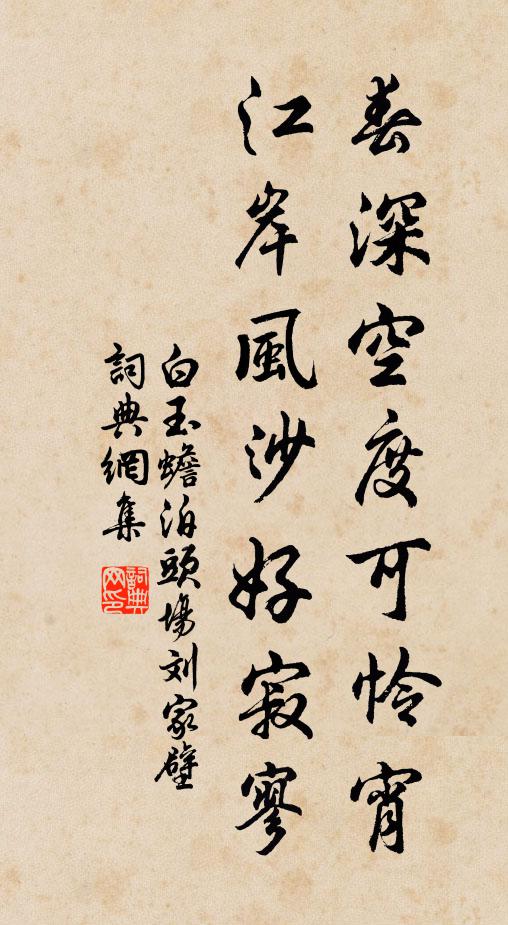 春深空度可怜宵
江岸風沙好寂寥
白玉蟾泊頭場刘家壁
詞典網集
詞典网印